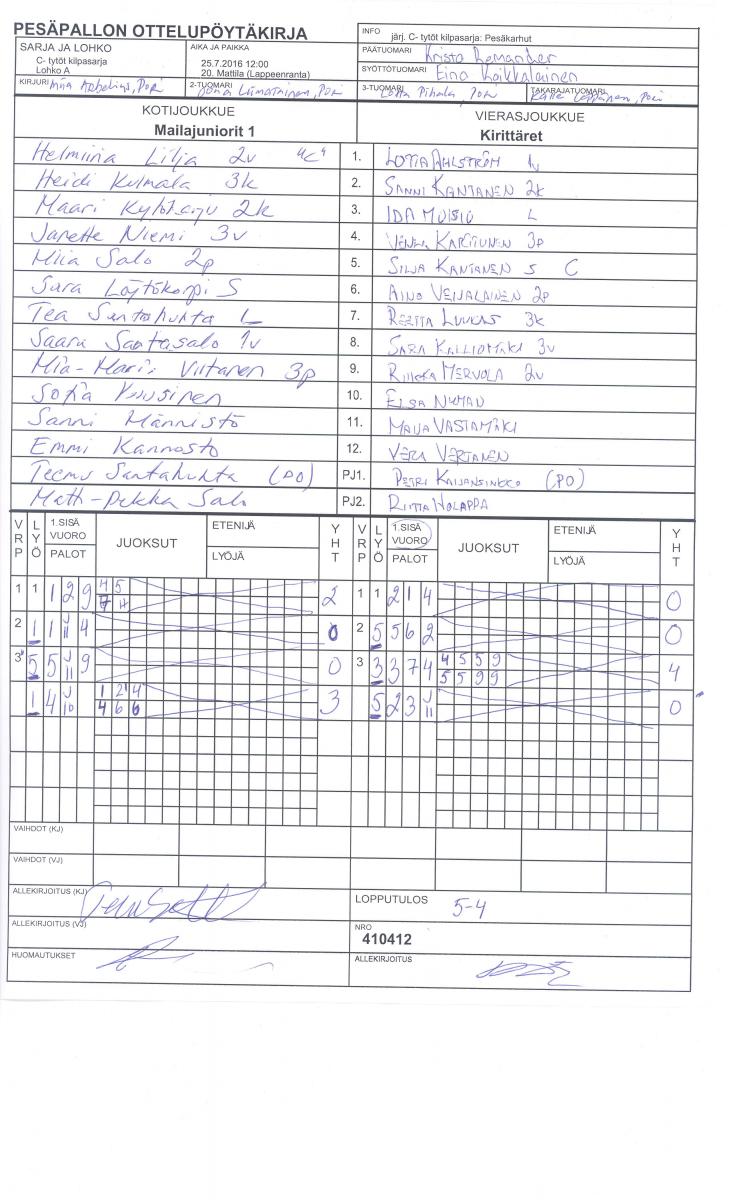 PESÄPALLON OTTELUPÖYTÄKIRJA
INFO järj. C- tytöt kilpasarja: Pesäkarhut
SARJA JA LOHKO
C- tytöt kilpasarja
Lohko A
AIKA JA PAIKKA
25.7.2016 12:00
20. Mattila (Lappeenranta)
PÄÄTUOMARI Krista
SYÖTTÖTUOMARI Eino Loikkalainen
KIRJURI Miia , Pori
2-TUOMARI Liimatainen, Pori
3-TUOMARI Lotta Pihala, Pori
TAKARAJATUOMARI Leppänen, Pori
KOTIJOUKKUE
Mailajuniorit 1
VIERASJOUKKUE
Kirittäret
Helmiina Lilja 2v "C" 1. LOTTA AHLSTRÖM 1v
Heidi Kulmala 3k 2. SANNI KANTANEN 2k
Maari 2k 3. IDA MOISIO L
Janette Niemi 3v 4. VENLA KARTTUNEN 3p
Miia Salo 2p 5. SILJA KANTANEN S C
Sara Löytökorpi S 6. AINO VEIJALAINEN 2p
Tea Santahuhta L 7. REETTA LUUKAS 3k
Saara Santasalo 1v 8. SARA KALLIOMÄKI 3v
Mia-Mari Viitanen 3p 9. RIIKKA MERVOLA 2v
Sofia Kuusinen 10. ELSA NYMAN
Sanni Männistö 11. MAIJA VASTAMÄKI
Emmi Kannosto 12. VERA VERTANEN
Teemu Santahuhta (PO) PJ1. PETRI KAIJANSINKKO (PO)
Matti-Pekka Salo PJ2. RIITTA NOLAPPA
VRP LYÖ 1.SISÄ VUORO PALOT JUOKSUT ETENIJÄ LYÖJÄ YHT VRP LYÖ 1.SISÄ VUORO PALOT JUOKSUT ETENIJÄ LYÖJÄ YHT
1 1 1 2 9 4 5 2 1 1 2 1 4 0
7 11
2 1 1 J 11 4 0 2 5 5 6 2 0
3 5 5 J 11 9 0 3 3 3 7 4 4 5 5 9 4
5 5 9 9
1 4 J 10 1 2 4 3 5 2 3 J 11 0
4 6 6
VAIHDOT (KJ)
VAIHDOT (VJ)
ALLEKIRJOITUS (KJ)
LOPPUTULOS 5-4
ALLEKIRJOITUS (VJ)
NRO
410412
HUOMAUTUKSET
ALLEKIRJOITUS